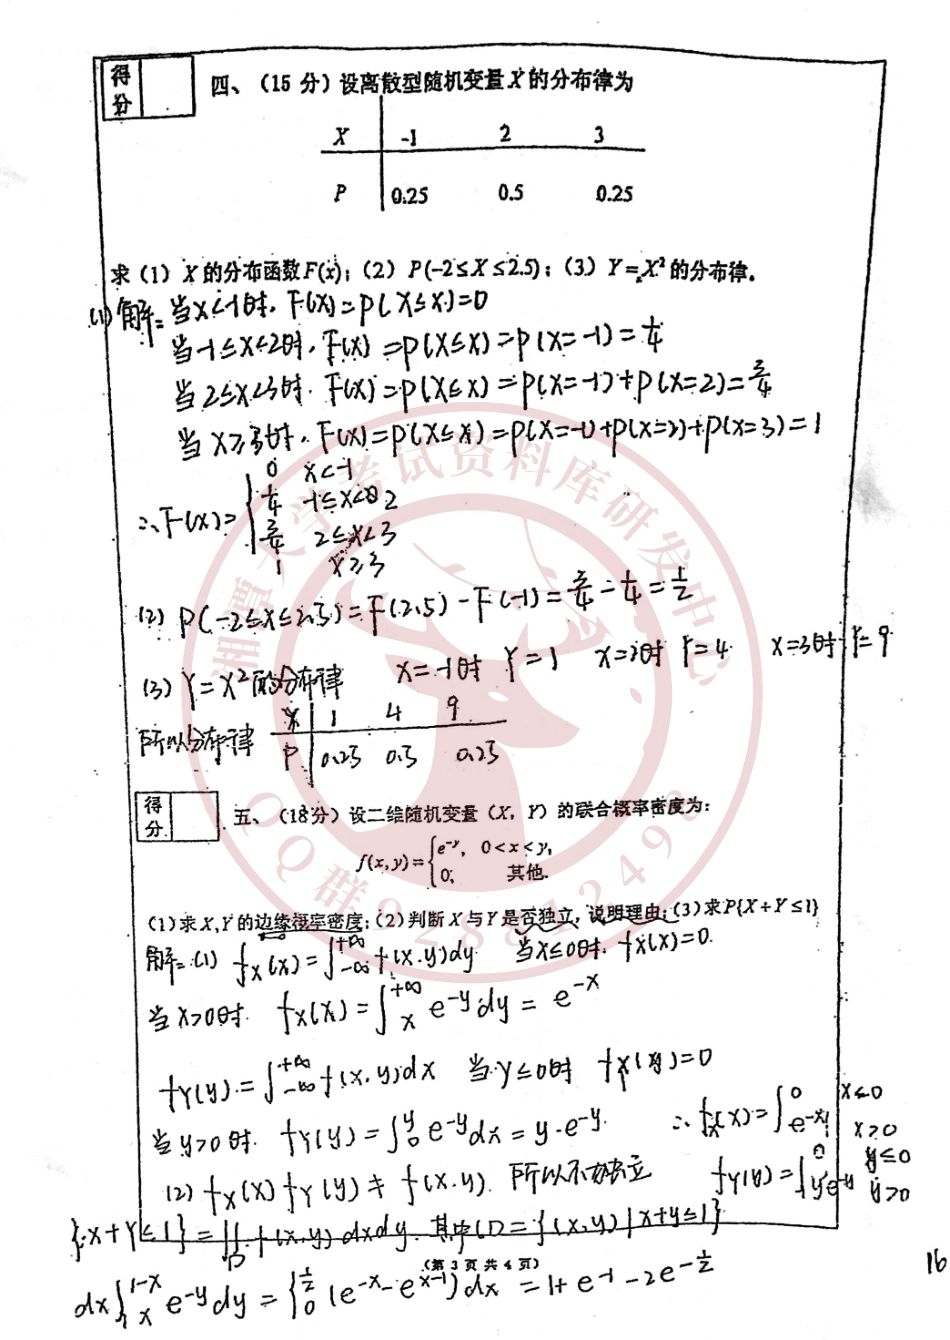 得分
四、（15 分）设离散型随机变量 X 的分布律为
X -1 2 3
P 0.25 0.5 0.25
求（1）X 的分布函数F(x)；（2）P(-2≤X≤2.5)；（3）Y=X²的分布律。
(1)解: 当X<-1时, F(X)=P(X≤x)=0
当-1≤X<2时, F(X)=P(X≤x)=P(X=-1)=1/4
当2≤X<3时. F(X)=P(X≤x)=P(X=-1)+P(X=2)=3/4
当X≥3时, F(X)=P(X≤x)=P(X=-1)+P(X=2)+P(X=3)=1
0 X<-1
1/4 -1≤X<2
∴F(X)=
3/4 2≤X<3
1 X≥3
(2) P(-2≤X≤2.5)=F(2.5)-F(-1)=3/4-1/4=1/2
(3) Y=X²的分布律 X=-1时 Y=1 X=2时 Y=4 X=3时 Y=9
所以分布律 1 4 9
P 0.25 0.5 0.25
得分
五、（18分）设二维随机变量（X，Y）的联合概率密度为：
f(x,y)={e^{-y}, 0<x<y,
0, 其他.
(1)求X,Y的边缘概率密度；(2)判断X与Y是否独立，说明理由；(3)求P{X+Y≤1}
解: (1) f_X(x)=∫_{-∞}^{+∞} f(x.y)dy 当X≤0时. f_X(x)=0.
当X>0时. f_X(x)=∫_x^{+∞} e^{-y}dy=e^{-x}
f_Y(y)=∫_{-∞}^{+∞} f(x.y)dx 当y≤0时 f_Y(y)=0
当y>0时. f_Y(y)=∫_0^y e^{-y}dx=y·e^{-y}. ∴f_X(x)={0 x≤0
e^{-x} x>0
(2) f_X(x)f_Y(y)≠f(x.y). 所以不独立 f_Y(y)={0 y≤0
ye^{-y} y>0
{X+Y≤1}=∬_D f(x,y)dxdy. 其中(D={(x,y)|x+y≤1}
（第 3 页 共 4 页）
dx∫_x^{1-x} e^{-y}dy=∫_0^{1/2}(e^{-x}-e^{x-1})dx=1+e^{-1}-2e^{-1/2}
16
湘潭大学考试资料库研发中心
QQ群928812498